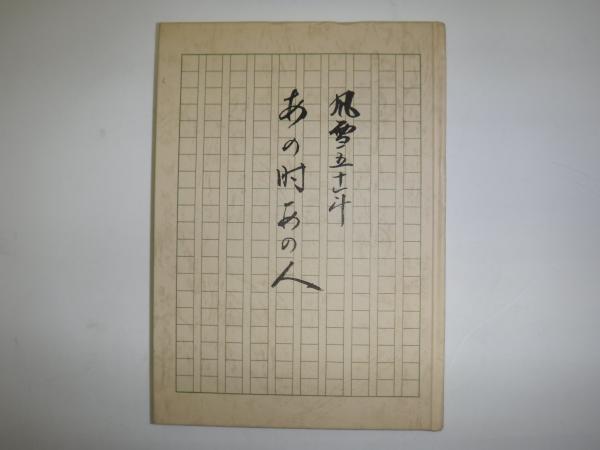 風雪五十年
あの时あの人